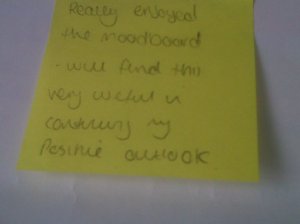 Really enjoyed
the moodboard
- will find this
very useful in
continuing my
Positive outlook